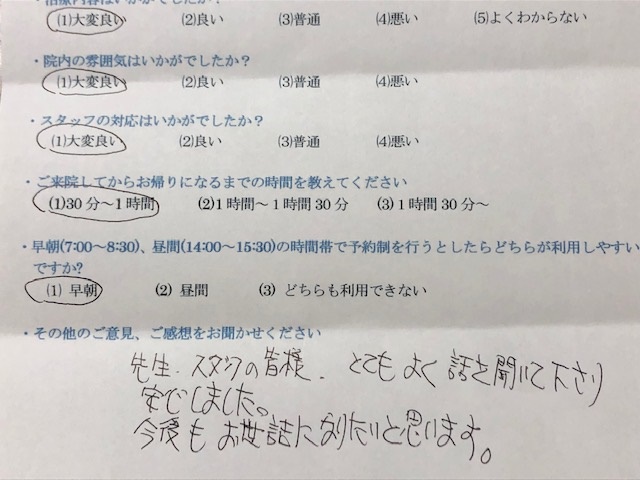 ・治療内容はいかがでしたか？
(1)大変良い (2)良い (3)普通 (4)悪い (5)よくわからない
・院内の雰囲気はいかがでしたか？
(1)大変良い (2)良い (3)普通 (4)悪い
・スタッフの対応はいかがでしたか？
(1)大変良い (2)良い (3)普通 (4)悪い
・ご来院してからお帰りになるまでの時間を教えてください
(1)30分～1時間 (2)1時間～1時間30分 (3)1時間30分～
・早朝(7:00～8:30)、昼間(14:00～15:30)の時間帯で予約制を行うとしたらどちらが利用しやすい
ですか?
(1) 早朝 (2) 昼間 (3) どちらも利用できない
・その他のご意見、ご感想をお聞かせください
先生、スタッフの皆様、とてもよく話を聞いて下さり
安心しました。
今後もお世話になりたいと思います。